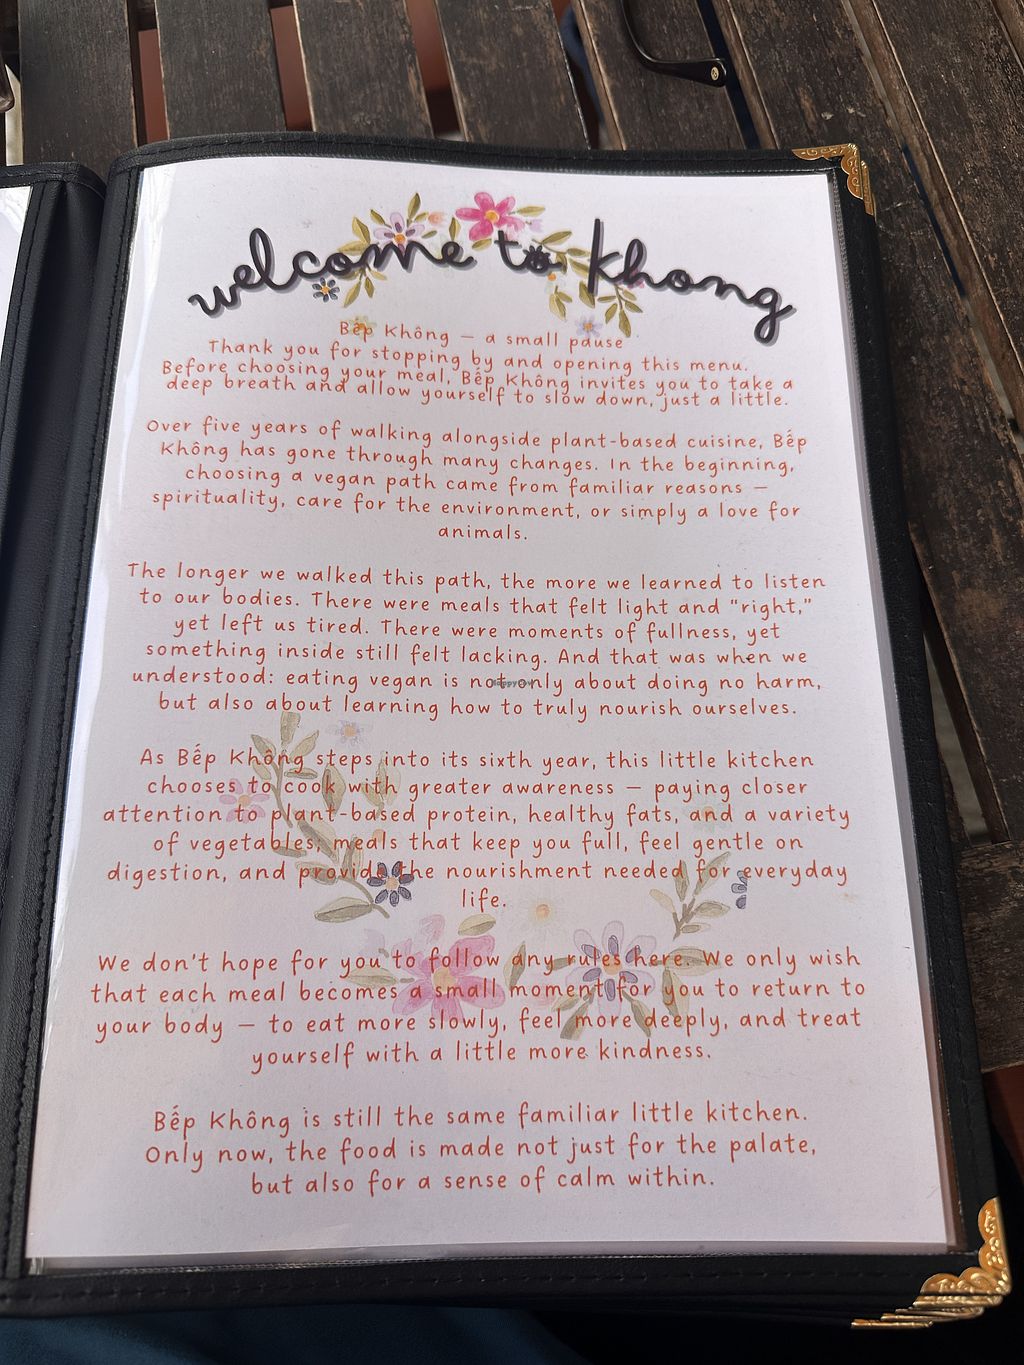 welcome to khong
Bếp Không – a small pause
Thank you for stopping by and opening this menu.
Before choosing your meal, Bếp Không invites you to take a
deep breath and allow yourself to slow down, just a little.
Over five years of walking alongside plant-based cuisine, Bếp
Không has gone through many changes. In the beginning,
choosing a vegan path came from familiar reasons –
spirituality, care for the environment, or simply a love for
animals.
The longer we walked this path, the more we learned to listen
to our bodies. There were meals that felt light and "right,"
yet left us tired. There were moments of fullness, yet
something inside still felt lacking. And that was when we
understood: eating vegan is not only about doing no harm,
but also about learning how to truly nourish ourselves.
As Bếp Không steps into its sixth year, this little kitchen
chooses to cook with greater awareness – paying closer
attention to plant-based protein, healthy fats, and a variety
of vegetables; meals that keep you full, feel gentle on
digestion, and provide the nourishment needed for everyday
life.
We don't hope for you to follow any rules here. We only wish
that each meal becomes a small moment for you to return to
your body – to eat more slowly, feel more deeply, and treat
yourself with a little more kindness.
Bếp Không is still the same familiar little kitchen.
Only now, the food is made not just for the palate,
but also for a sense of calm within.